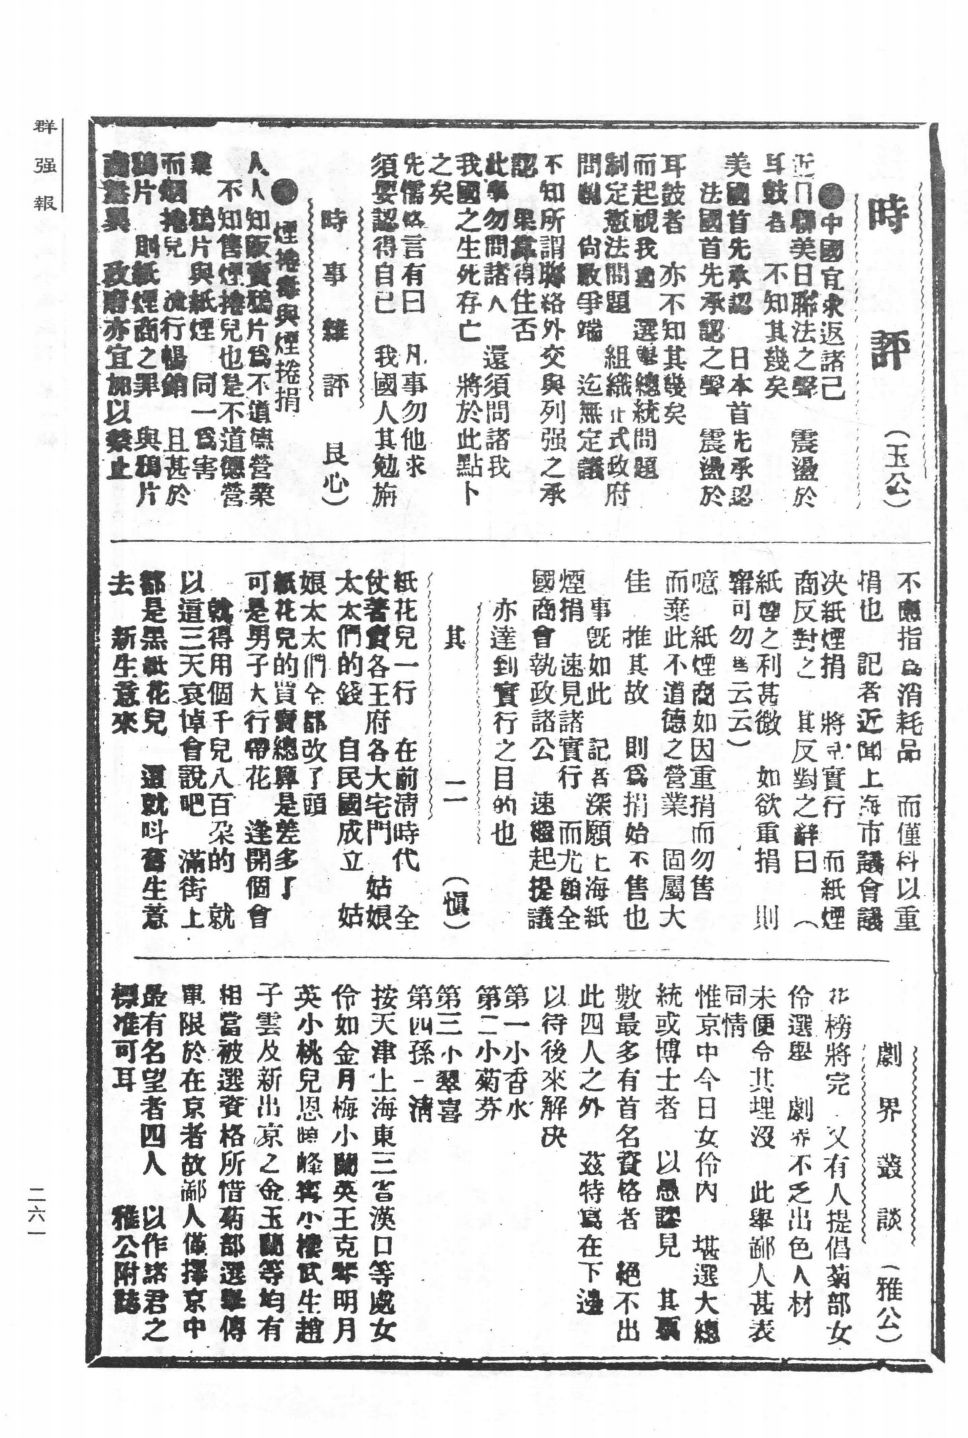 群强報
時評（玉公）
●中國宜求返諸己
近日聯美日聯法之聲　震盪於
耳鼓者　不知其幾矣
美國首先承認　日本首先承認
法國首先承認之聲　震盪於
耳鼓者　亦不知其幾矣
而起視我國　選舉總統問題
制定憲法問題　組織正式政府
問題　尙啟爭端　迄無定議
不知所謂聯絡外交與列强之承
認　果靠得住否
此事勿問諸人　還須問諸我
我國之生死存亡　將於此點卜
之矣
先儒格言有曰　凡事勿他求
須要認得自己　我國人其勉旃
時事雜評　良心）
●煙捲毒與煙捲捐
人人知販賣鴉片爲不道德營業
不知售煙捲兒也是不道德營
業　鴉片與紙煙　同一爲害
而烟捲兒　流行暢銷　且甚於
鴉片　則紙煙商之罪　與鴉片
商無異　政府亦宜加以禁止
不應指爲消耗品　而僅科以重
捐也　記者近聞上海市議會議
决紙煙捐　將　實行　而紙煙
商反對之　其反對之辭曰　（
紙煙之利甚微　如欲重捐　則
甯可勿售云云）
噫　紙煙商如因重捐而勿售
而棄此不道德之營業　固屬大
佳　推其故　則爲捐始不售也
事旣如此　記者深願上海紙
煙捐　速見諸實行　而尤願全
國商會執政諸公　速繼起提議
亦達到實行之目的也
其二（愼）
紙花兒一行　在前淸時代　全
仗著賣各王府各大宅門　姑娘
太太們的錢　自民國成立　姑
娘太太們全都改了頭
紙花兒的買賣總算是差多了
可是男子大行帶花　逢開個會
就得用個千兒八百朶的　就
以這三天哀悼會說吧　滿街上
都是黑紙花兒　這就叫舊生意
去　新生意來
劇界叢談（雅公）
花榜將完　又有人提倡菊部女
伶選舉　劇界不乏出色人材
未便令其埋沒　此舉鄙人甚表
同情
惟京中今日女伶內　堪選大總
統或博士者　以愚謬見　其票
數最多有首名資格者　絕不出
此四人之外　茲特寫在下邊
以待後來解决
第一小香水
第二小菊芬
第三小翠喜
第四孫一淸
按天津上海東三省漢口等處女
伶如金月梅小蘭英王克琴明月
英小桃兒恩曉峰甯小樓武生趙
子雲及新出京之金玉蘭等均有
相當被選資格所惜菊部選舉傳
單限於在京者故鄙人僅擇京中
最有名望者四人　以作諸君之
標准可耳　雅公附誌
二六一